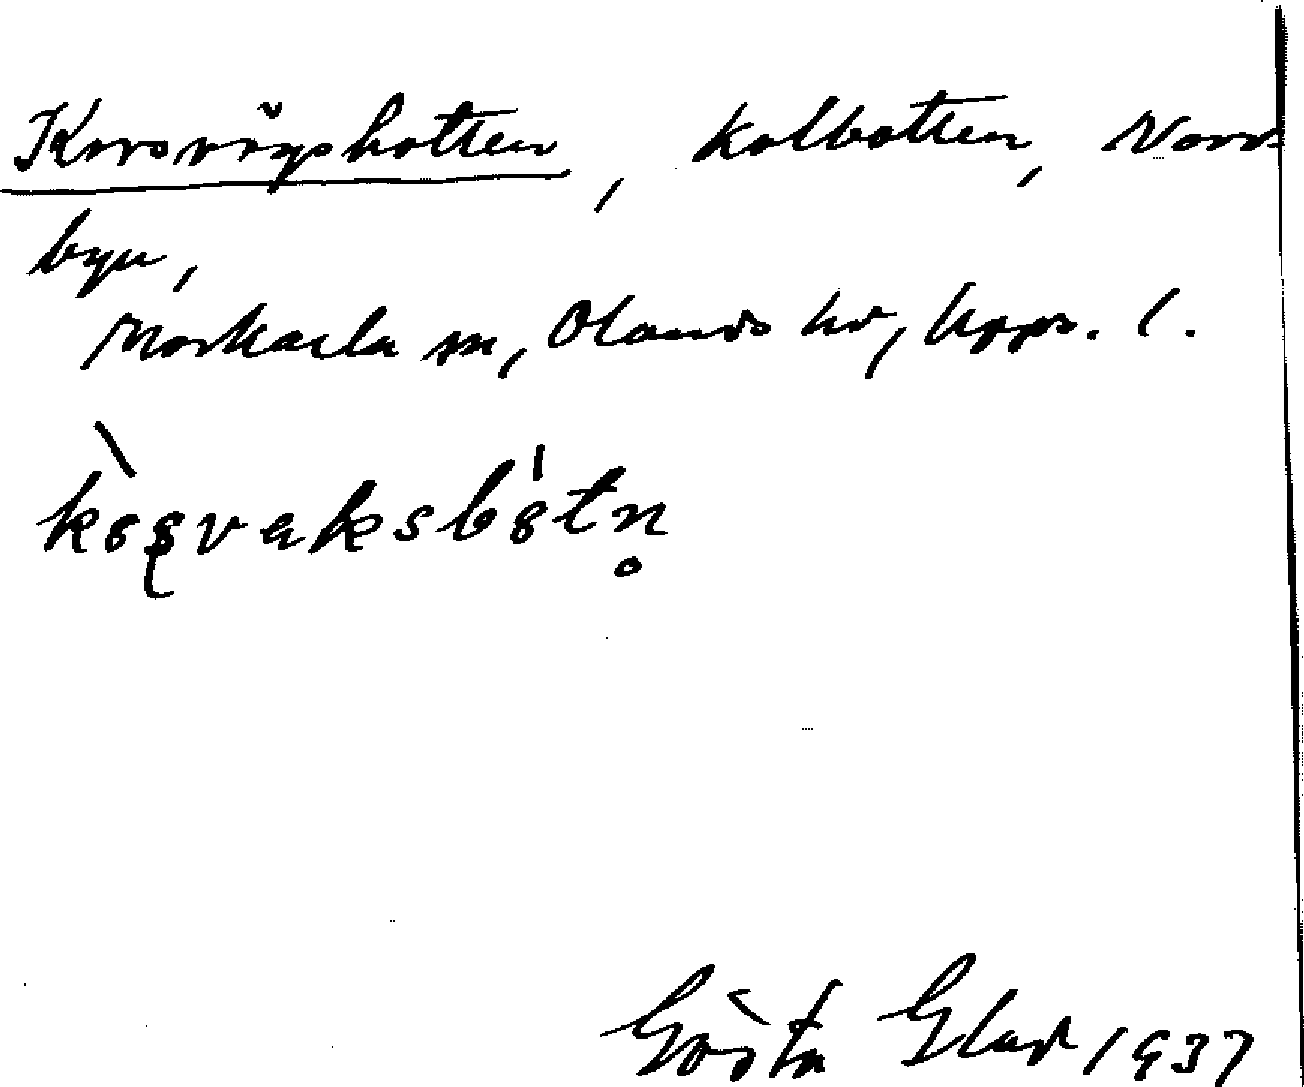 Korsvägsbotten, kolbotten, Norr-
byn,
Morkarla sn, Olands hd, Upps. l.
kòsvaksbótn̥
Gösta Glad 1937